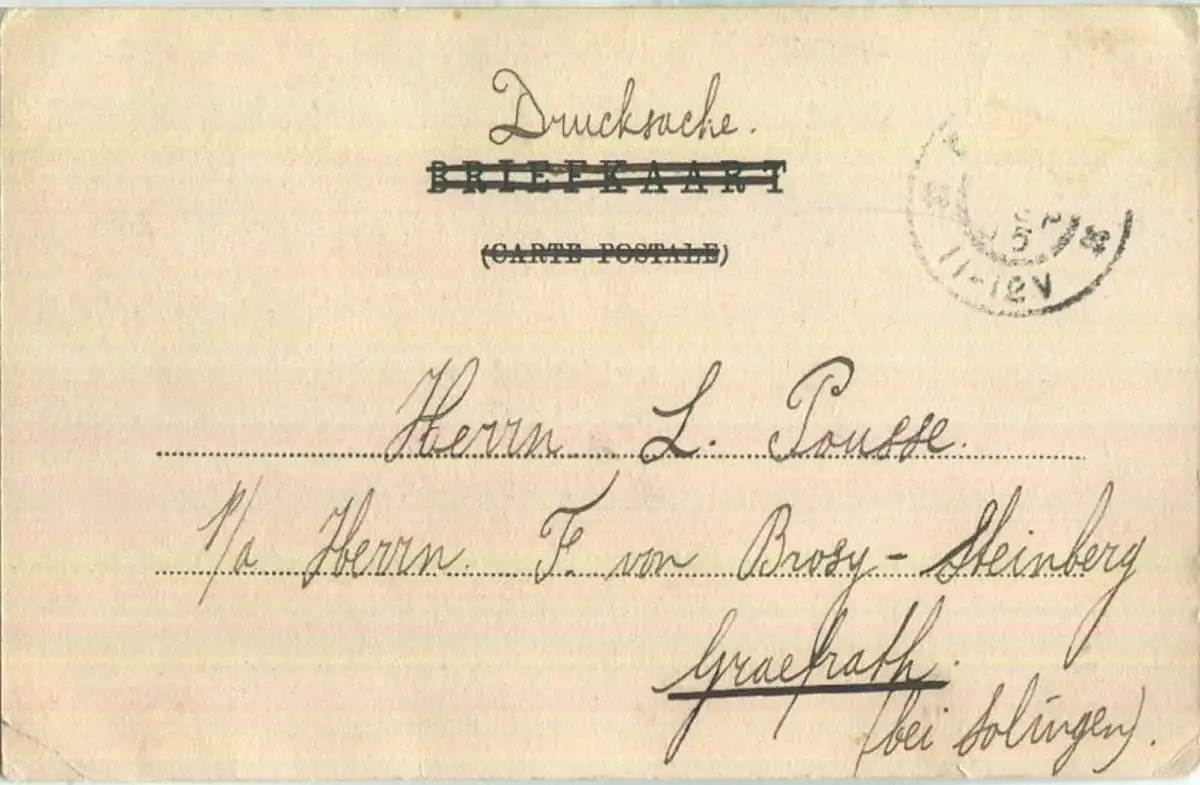 Drucksache.
BRIEFKAART
(CARTE POSTALE)
11-12V
Herrn L. Pousse.
p/a Herrn. F. von Brosy-Steinberg
Graefrath.
(bei Solingen).